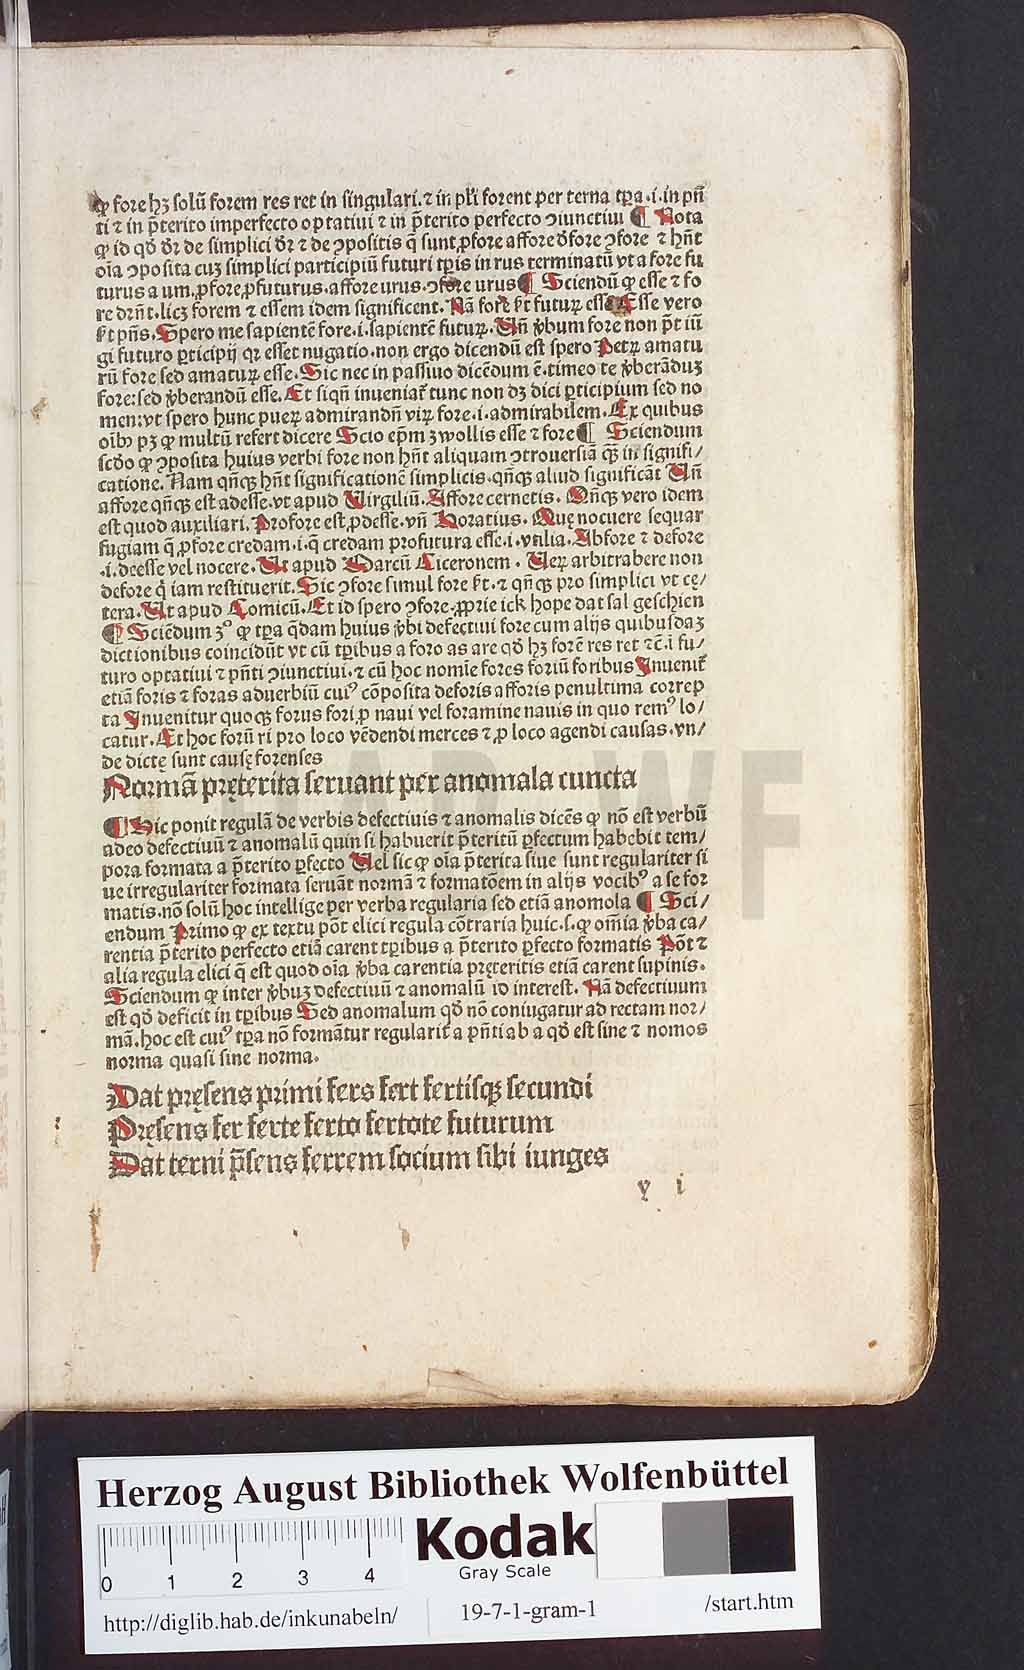 ꝙ fore hꝫ solū forem res ret in singulari. ⁊ in pl'i forent per terna tp̄a .i. in pn̄
ti ⁊ in p̄terito imperfecto optatiui ⁊ in p̄terito perfecto ↄiunctiui ¶ Nota
ꝙ id qd̄ dr̄ de simplici dr̄ ⁊ de ↄpositis q̄ sunt ꝓfore affore d̄fore ↄfore ⁊ hn̄t
oīa ↄposita cuꝫ simplici participiū futuri tp̄is in rus terminatū vt a fore fu
turus a um. ꝓfore, ꝓfuturus. affore urus. ↄfore urus ¶ Sciendū ꝙ esse ⁊ fo
re drn̄t. licꝫ forem ⁊ essem idem significent. Nā fore s̄t futuꝝ esse Esse vero
s̄t pn̄s. Spero me sapientē fore .i. sapientē futuꝝ. Un̄ v̄bum fore non p̄t iūi
gi futuro ꝑticipij qꝛ esset nugatio. non ergo dicendū est spero Petꝝ amatu
rū fore sed amatuꝝ esse. Sic nec in passiuo dicēdum ē. timeo te v̄berāduꝫ
fore: sed v̄berandū esse. Et siqn̄ inueniat᷑ tunc non dꝫ dici ꝑticipium sed no
men: vt spero hunc pueꝝ admirandū viꝝ fore .i. admirabilem. Ex quibus
oībꝰ pꝫ ꝙ multū refert dicere Scio ep̄m ʒwollis esse ⁊ fore ¶ Sciendum
scd̄o ꝙ ↄposita huius verbi fore non hn̄t aliquam ↄtrouersiā qꝫ in signifi/
catione. Nam qn̄qꝫ hn̄t significationē simplicis. qn̄qꝫ aliud significāt Un̄
affore qn̄qꝫ est adesse. vt apud Uirgiliū. Affore cernetis. Qn̄qꝫ vero idem
est quod auxiliari. Profore est ꝓdesse. vn̄ Horatius. Quę nocuere sequar
fugiam q̄ ꝓfore credam .i. q̄ credam profutura esse .i. vtilia. Abfore ⁊ defore
.i. deesse vel nocere. Ut apud Marcū Ciceronem. Ueꝝ arbitrabere non
defore q̄ iam restituerit. Sic ↄfore simul fore s̄t. ⁊ qn̄qꝫ pro simplici vt cę/
tera. Ut apud Comicū. Et id spero ↄfore. ꝓprie ick hope dat sal geschien
¶ Sciēdum ʒꝰ ꝙ tp̄a q̄dam huius v̄bi defectiui fore cum alijs quibusdaꝫ
dictionibus coincidūt vt cū tp̄ibus a foro as are qd̄ hꝫ forē res ret ⁊c̄. ī fu/
turo optatiui ⁊ pn̄ti ↄiunctiui. ⁊ cū hoc nomīe fores foriū foribus Inuenit᷑
etiā foris ⁊ foras aduerbiū cuiꝰ cōposita deforis afforis penultima correp
ta Inuenitur quoqꝫ forus fori ꝓ naui vel foramine nauis in quo remꝰ lo/
catur. Et hoc forū ri pro loco vēdendi merces ⁊ ꝓ loco agendi causas. vn/
de dictę sunt causę forenses
Normā pręterita seruant per anomala cuncta
¶ Hic ponit regulā de verbis defectiuis ⁊ anomalis dicēs ꝙ nō est verbū
adeo defectiuū ⁊ anomalū quin si habuerit p̄teritū ꝑfectum habebit tem/
pora formata a p̄terito ꝑfecto Uel sic ꝙ oīa p̄terita siue sunt regulariter si
ue irregulariter formata seruāt normā ⁊ formatōem in alijs vocibꝰ a se for
matis. nō solū hoc intellige per verba regularia sed etiā anomola ¶ Sci/
endum Primo ꝙ ex textu pōt elici regula cōtraria huic .s. ꝙ om̄ia v̄ba ca/
rentia p̄terito perfecto etiā carent tp̄ibus a p̄terito ꝑfecto formatis Pōt ⁊
alia regula elici q̄ est quod oīa v̄ba carentia pręteritis etiā carent supinis.
Sciendum ꝙ inter v̄buꝫ defectiuū ⁊ anomalū id interest. Nā defectiuum
est qd̄ deficit in tp̄ibus Sed anomalum qd̄ nō coniugatur ad rectam nor/
mā. hoc est cuiꝰ tp̄a nō formātur regularit᷑ a pn̄ti ab a qd̄ est sine ⁊ nomos
norma quasi sine norma.
Dat pręsens primi fers fert fertisqꝫ secundi
Pręsens fer ferte ferto fertote futurum
Dat terni p̄sens ferrem socium sibi iunges
y i
HAB WF
Herzog August Bibliothek Wolfenbüttel
Kodak
Gray Scale
0 1 2 3 4
http://diglib.hab.de/inkunabeln/ 19-7-1-gram-1 /start.htm